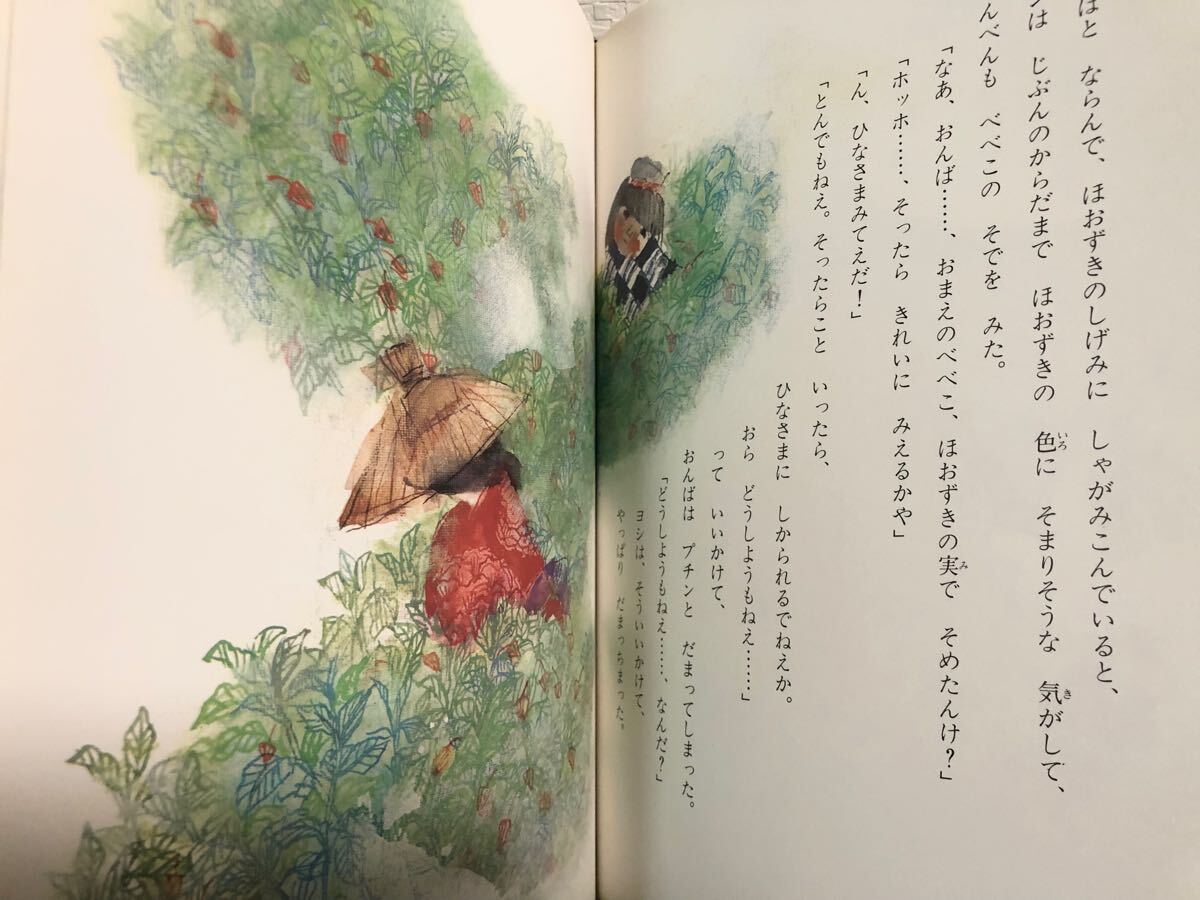 ほと ならんで、ほおずきのしげみに しゃがみこんでいると、
は じぶんのからだまで ほおずきの 色に そまりそうな 気がして、
んべんも べべこの そでを みた。
「なあ、おんば……、おまえのべべこ、ほおずきの実で そめたんけ?」
「ホッホ……、そったら きれいに みえるかや」
「ん、ひなさまみてえだ!」
「とんでもねえ。そったらこと いったら、
ひなさまに しかられるでねえか。
おら どうしようもねえ……」
って いいかけて、
おんばは プチンと だまってしまった。
「どうしようもねえ……、なんだ?」
ヨシは、そういいかけて、
やっぱり だまっちまった。